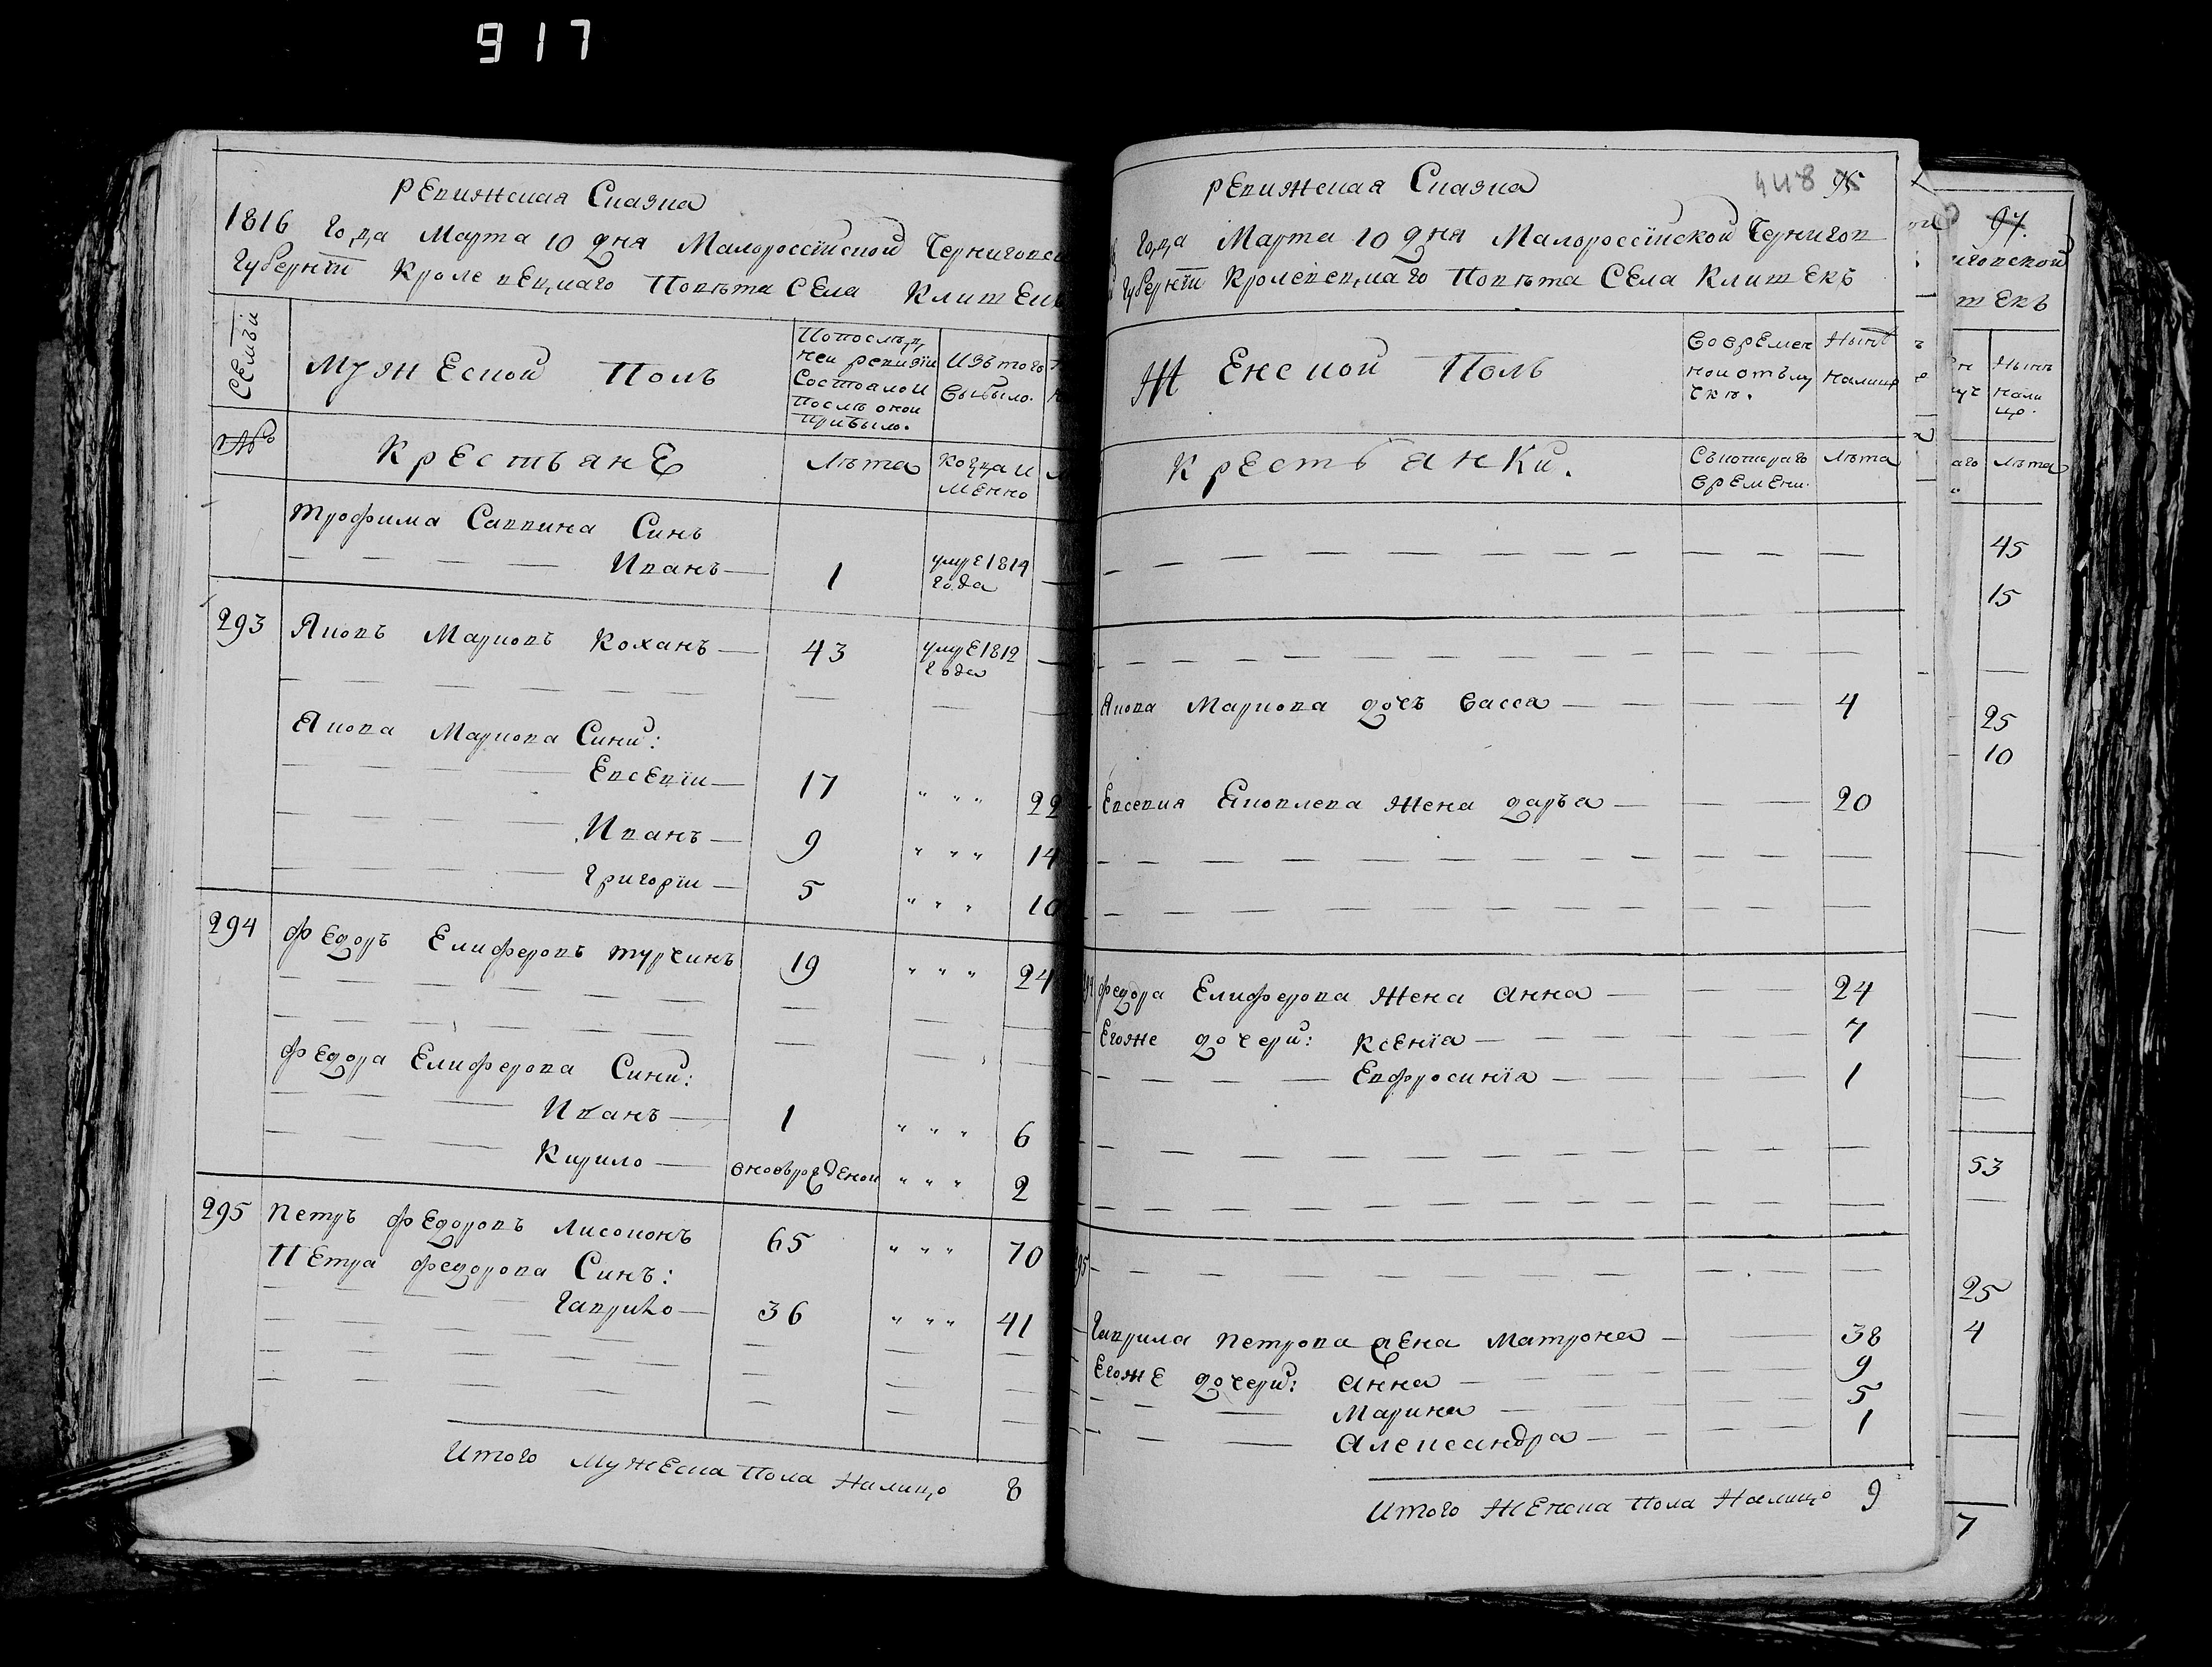 917
Ревижская Сказка
1816 Года Марта 10 Дня Малороссїйской Черниговс
Губернїи Кролевецкаго Повѣта Села Клишек
Семьи
Мужеской Полъ
Попослѣд
ней ревизїи
Состояло и
послѣ оной
прибыло.
Изъ того
выбыло.
№
Крестьяне
Лѣта
Когда и
менно
Трофима Саввина Синъ
Иванъ
1
умре 1814
Года
293
Яковъ Марковъ Коханъ
43
умре 1812
Года
Якова Маркова Сини:
Евсевїи
17
22
Иванъ
9
14
Григорїи
5
10
294
Федоръ Елиферовъ Турчинъ
19
24
Федора Елиферова Сини:
Иванъ
1
6
Кирило
вновьрожденой
2
295
Петръ Федоровъ Лисоконъ
65
70
Петра Федорова Синъ:
Гаврило
36
41
Итого Мужеска Пола Налицо
8
Ревижская Сказка
448 95
Года Марта 10 Дня Малороссїйской Чернигов
Губернїи Кролевецкаго Повѣта Села Клишекъ
Женской Полъ
Во времен
ной отълу
чкѣ.
Нынѣ
налицо
Крестьянки.
Съкотораго
времени.
Лѣта
Якова Маркова дочъ Васса
4
Евсевия Яковлева Жена Даръа
20
Федора Елиферова Жена Анна
24
Егоже дочери: Ксенїа
7
Евфросинїа
1
295
Гаврила Петрова жена Матрона
38
Егоже дочери: Анна
9
Марина
5
Александра
1
Итого Женска Пола Налицо
9
97.
иговской
шекъ
Нынѣ
нали
цо.
Лѣта
45
15
25
10
53
25
4
7